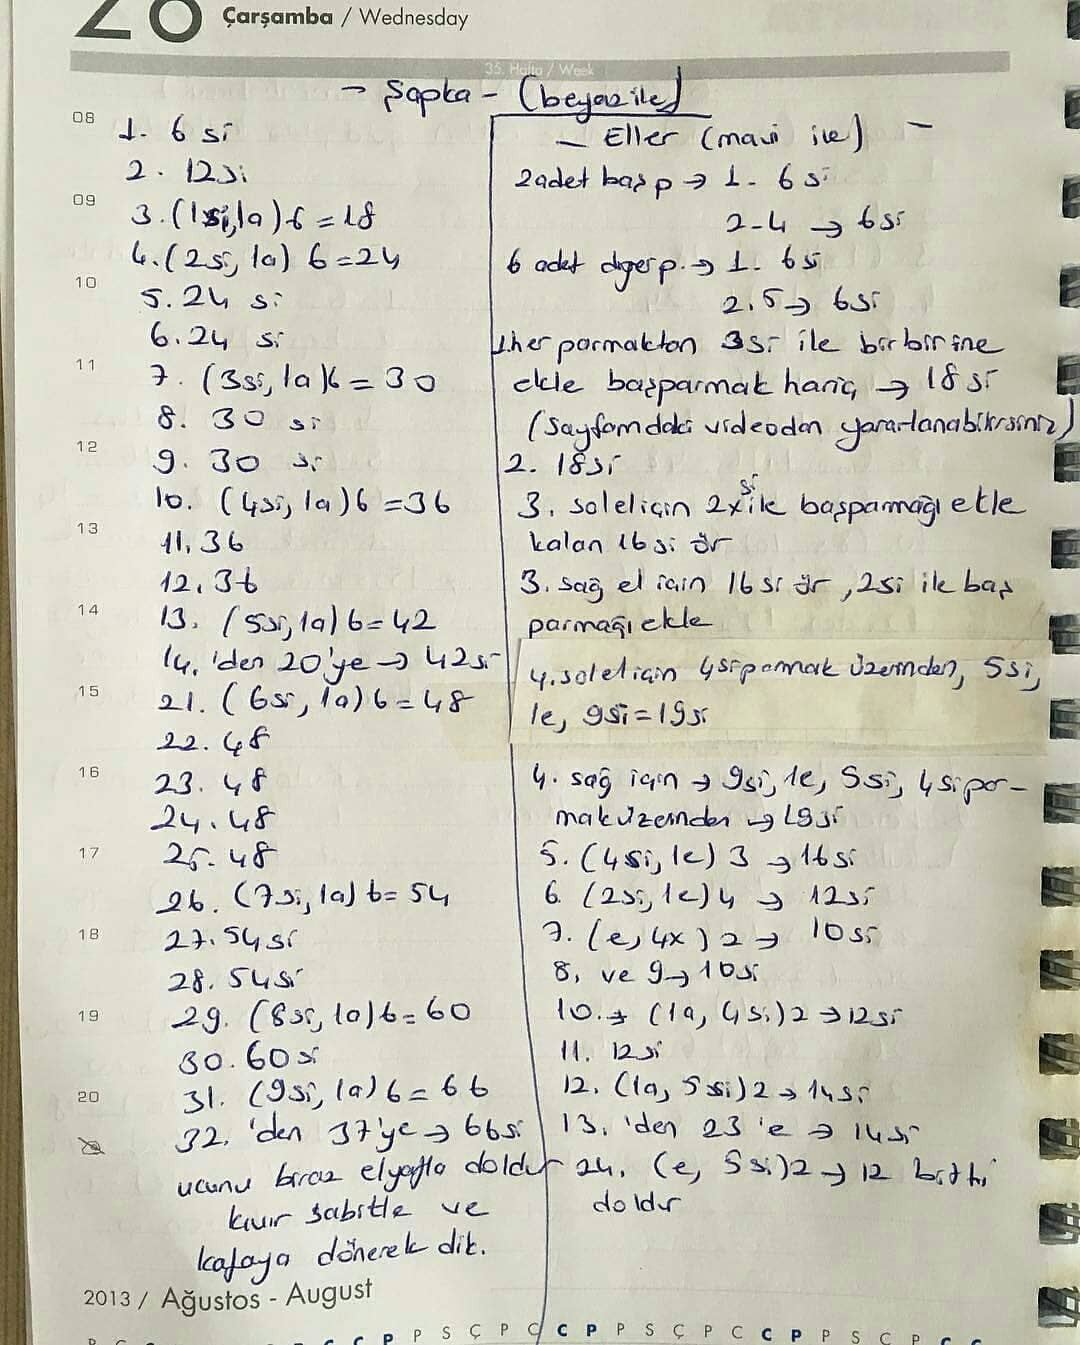 28 Çarşamba / Wednesday
35. Hafta / Week
- Şapka - (beyaz ile)
08
1. 6 si
2. 12 si
09
3. (1si, 1a) 6 = 18
4. (2si, 1a) 6 = 24
10
5. 24 si
6. 24 si
11
7. (3si, 1a) 6 = 30
8. 30 si
12
9. 30 si
10. (4si, 1a) 6 = 36
13
11. 36
12. 36
14
13. (5si, 1a) 6 = 42
14.'den 20'ye → 42si
15
21. (6si, 1a) 6 = 48
22. 48
16
23. 48
24. 48
17
25. 48
26. (7si, 1a) 6 = 54
18
27. 54 si
28. 54 si
19
29. (8si, 1a) 6 = 60
30. 60 si
20
31. (9si, 1a) 6 = 66
32.'den 37'ye → 66si
ucunu biraz elyafla doldur
kıvır sabitle ve
kafaya dönerek dik.
- Eller (mavi ile) -
2 adet baş p → 1. 6 si
2-4 → 6 si
6 adet diğer p. → 1. 6 si
2.5 → 6 si
1.her parmaktan 3 si ile birbirine
ekle başparmak hariç → 18 si
(Sayfamdaki videodan yararlanabilirsiniz)
2. 18 si
3. sol el için 2x si ile başparmağı ekle
kalan 16 si ör
3. sağ el için 16 si ör, 2si ile baş
parmağı ekle
4. sol el için 4 si parmak üzerinden, 5 si,
1e, 9si = 19si
4. sağ için → 9si, 1e, 5si, 4 si par-
mak üzerinden → 19 si
5. (4si, 1e) 3 → 16 si
6. (2si, 1e) 4 → 12 si
7. (e, 4x) 2 → 10 si
8. ve 9 → 10 si
10. → (1a, 4si) 2 → 12si
11. 12 si
12. (1a, 5 si) 2 → 14 si
13.'den 23'e → 14 si
24. (e, 5 si) 2 → 12 bitti
doldur
2013 / Ağustos - August
P S Ç P C C P P S Ç P C C P P S Ç P C C